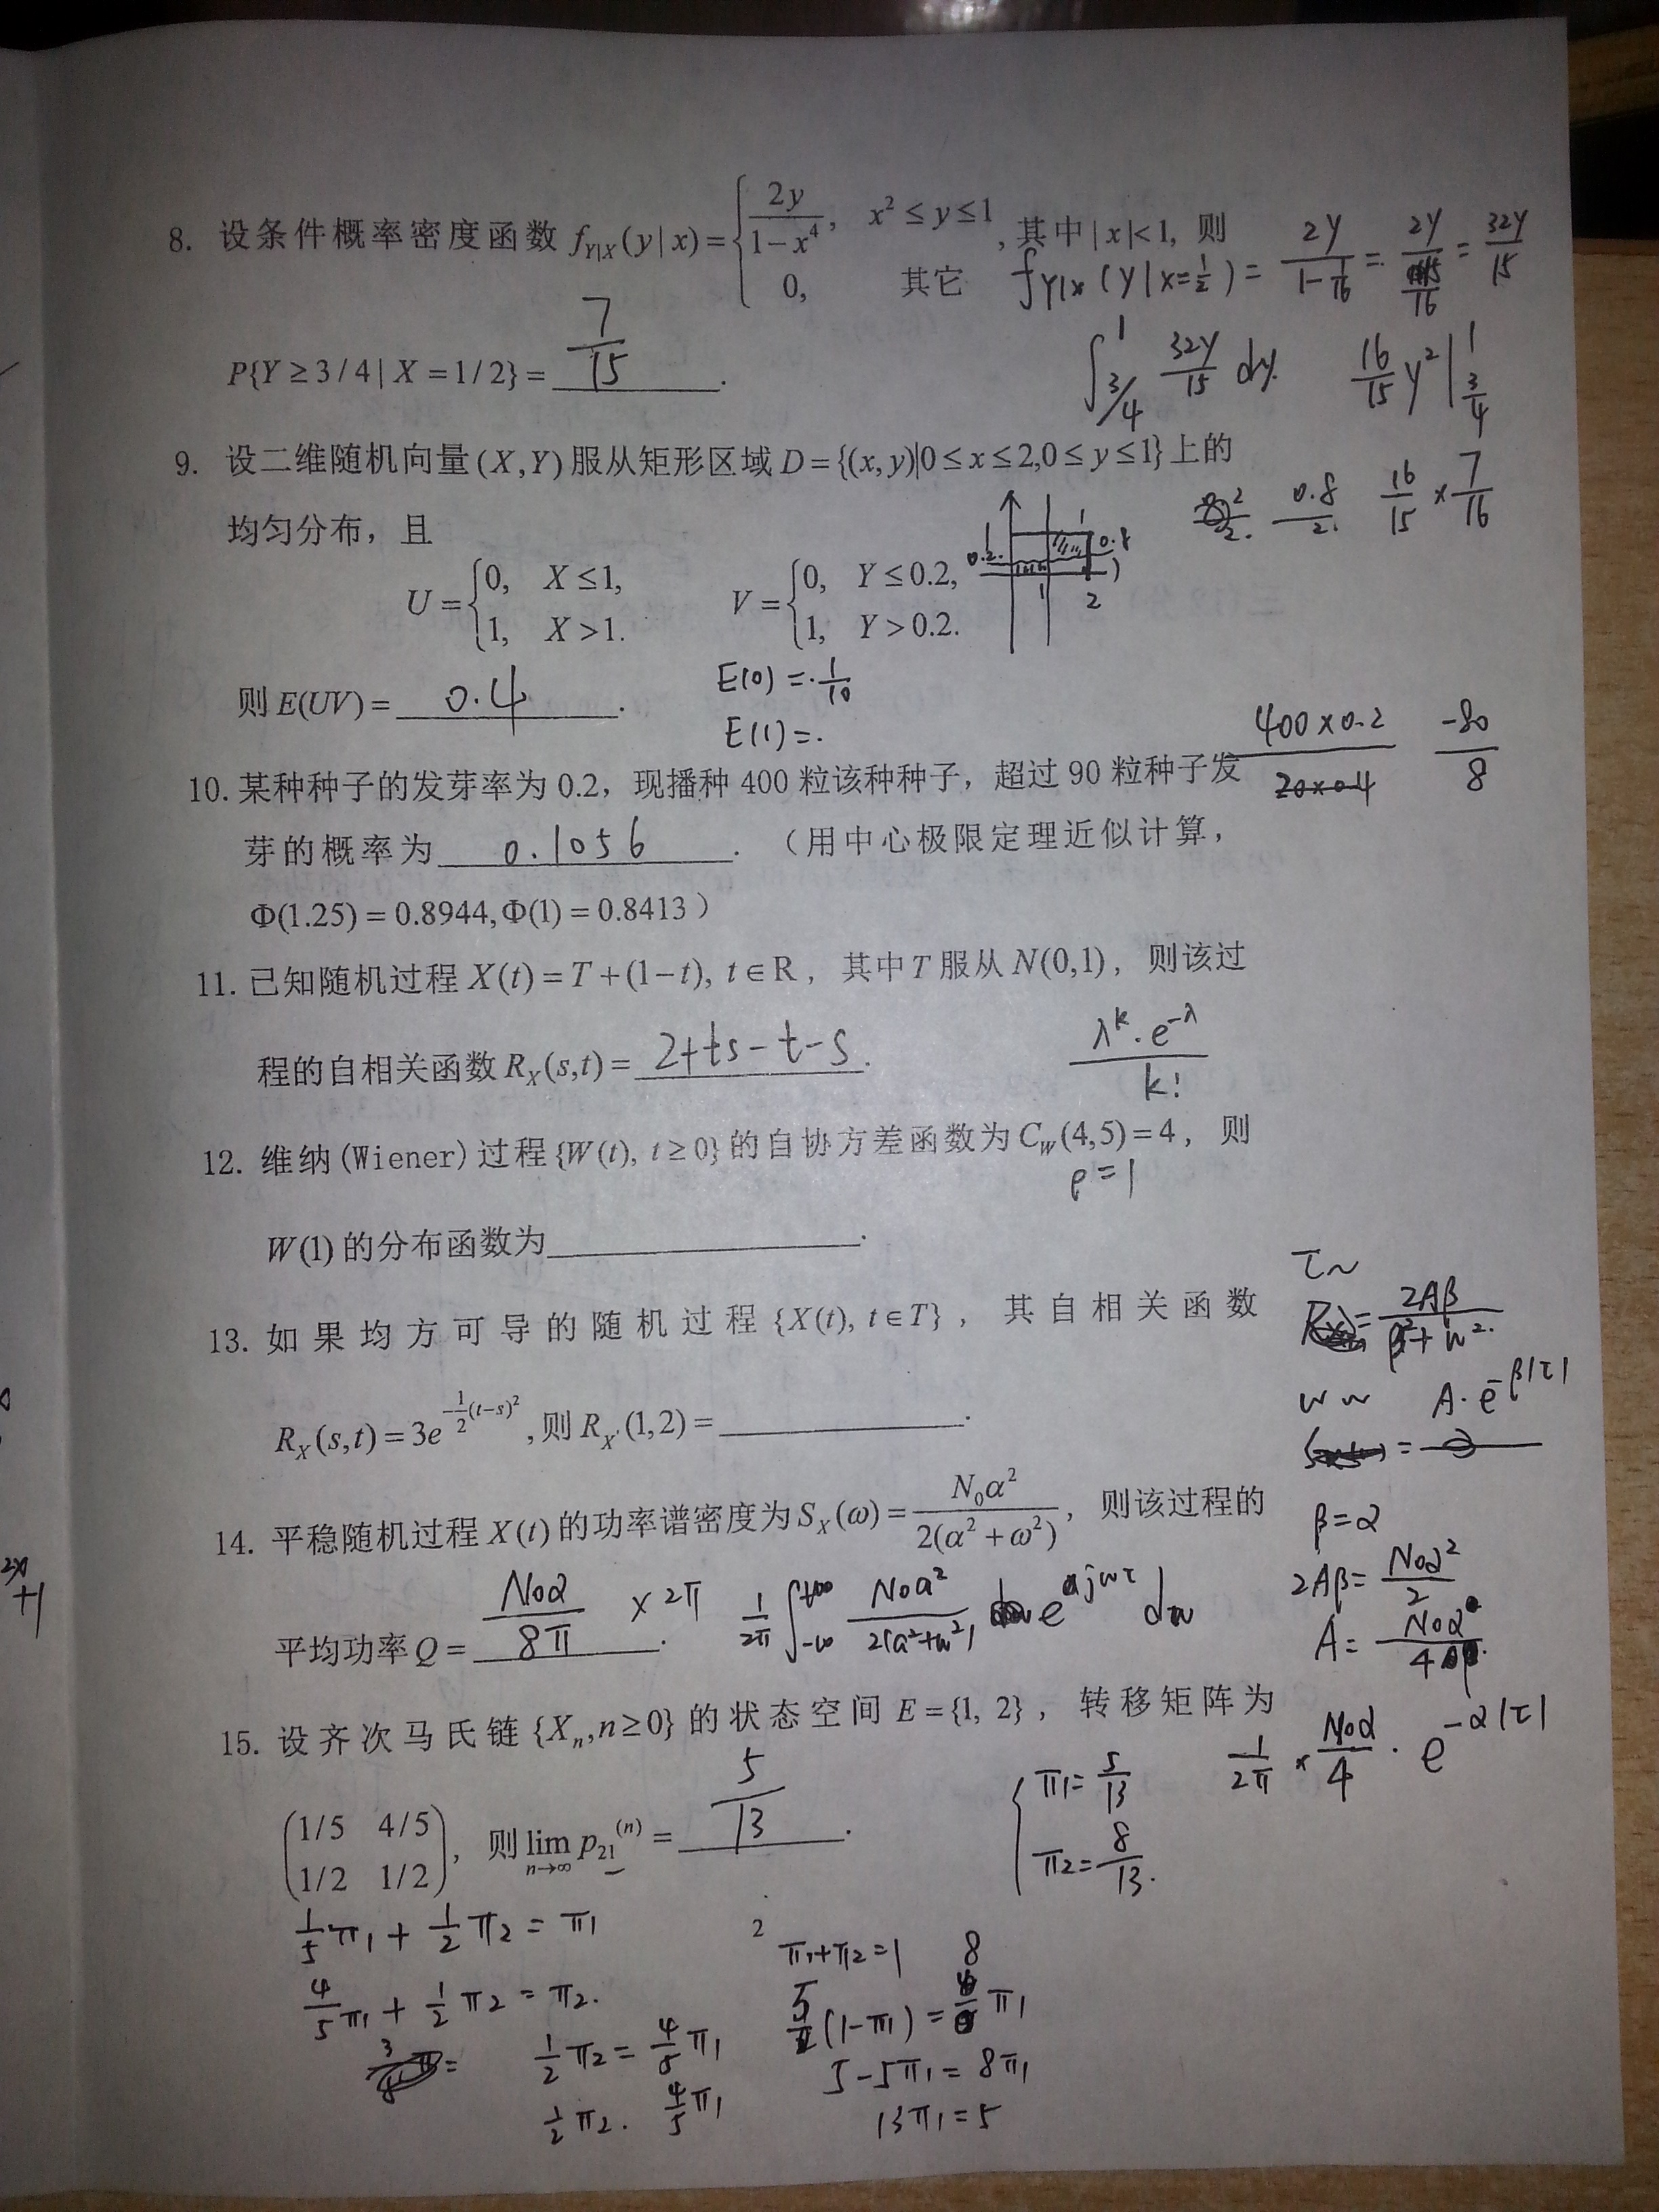 8. 设条件概率密度函数 f_{Y|X}(y|x) = { 2y/(1−x⁴), x² ≤ y ≤ 1; 0, 其它 , 其中|x|<1, 则
f_{Y|X}(y|x=1/2) = 2y/(1−1/16) = 2y/(15/16) = 32y/15
P{Y ≥ 3/4 | X = 1/2} = 7/15 .
∫_{3/4}^{1} 32y/15 dy. 16/15 y² |_{3/4}^{1}
9. 设二维随机向量(X,Y)服从矩形区域 D = {(x,y)|0 ≤ x ≤ 2,0 ≤ y ≤ 1}上的
0.8/2. 16/15 × 7/16
均匀分布，且
1 1 0.2. 0.8 1 2
U = {0, X ≤ 1, 1, X > 1. V = {0, Y ≤ 0.2, 1, Y > 0.2.
则 E(UV) = 0.4 .
E(0) = 1/10
E(1) =.
400×0.2 / 20×0.4 −80/8
10. 某种种子的发芽率为 0.2，现播种 400 粒该种种子，超过 90 粒种子发
芽的概率为 0.1056 . （用中心极限定理近似计算，
Φ(1.25) = 0.8944, Φ(1) = 0.8413 ）
11. 已知随机过程 X(t) = T + (1−t), t ∈ R ，其中 T 服从 N(0,1)，则该过
程的自相关函数 R_X(s,t) = 2+ts−t−s .
λ^k · e^{−λ} / k!
12. 维纳(Wiener)过程{W(t), t ≥ 0}的自协方差函数为 C_W(4,5) = 4，则
ρ=1
W(1) 的分布函数为 .
τ~
13. 如果均方可导的随机过程{X(t), t∈T}，其自相关函数
= 2Aβ/(β²+w².
R_X(s,t) = 3e^{−1/2(t−s)²} ,则 R_{X'}(1,2) = .
w~ A·e^{−β|τ|}
14. 平稳随机过程 X(t) 的功率谱密度为 S_X(ω) = N₀α²/2(α²+ω²)，则该过程的
β=α
2Aβ= N₀α²/2
平均功率 Q = N₀α/8π . ×2π 1/2π ∫_{−∞}^{+∞} N₀α²/2(α²+w²) e^{jwτ} dw
A= N₀α/4
15. 设齐次马氏链{X_n, n ≥ 0}的状态空间 E = {1, 2}，转移矩阵为
1/2π × N₀α/4 · e^{−α|τ|}
(1/5 4/5; 1/2 1/2)，则 lim_{n→∞} p₂₁^{(n)} = 5/13 .
{π1= 5/13
π2= 8/13.
1/5 π1 + 1/2 π2 = π1
4/5 π1 + 1/2 π2 = π2.
1/2 π2 = 4/5 π1
1/2 π2. 4/5 π1
2
π1+π2=1 8
5(1−π1) = π1
5−5π1 = 8π1
13π1 = 5